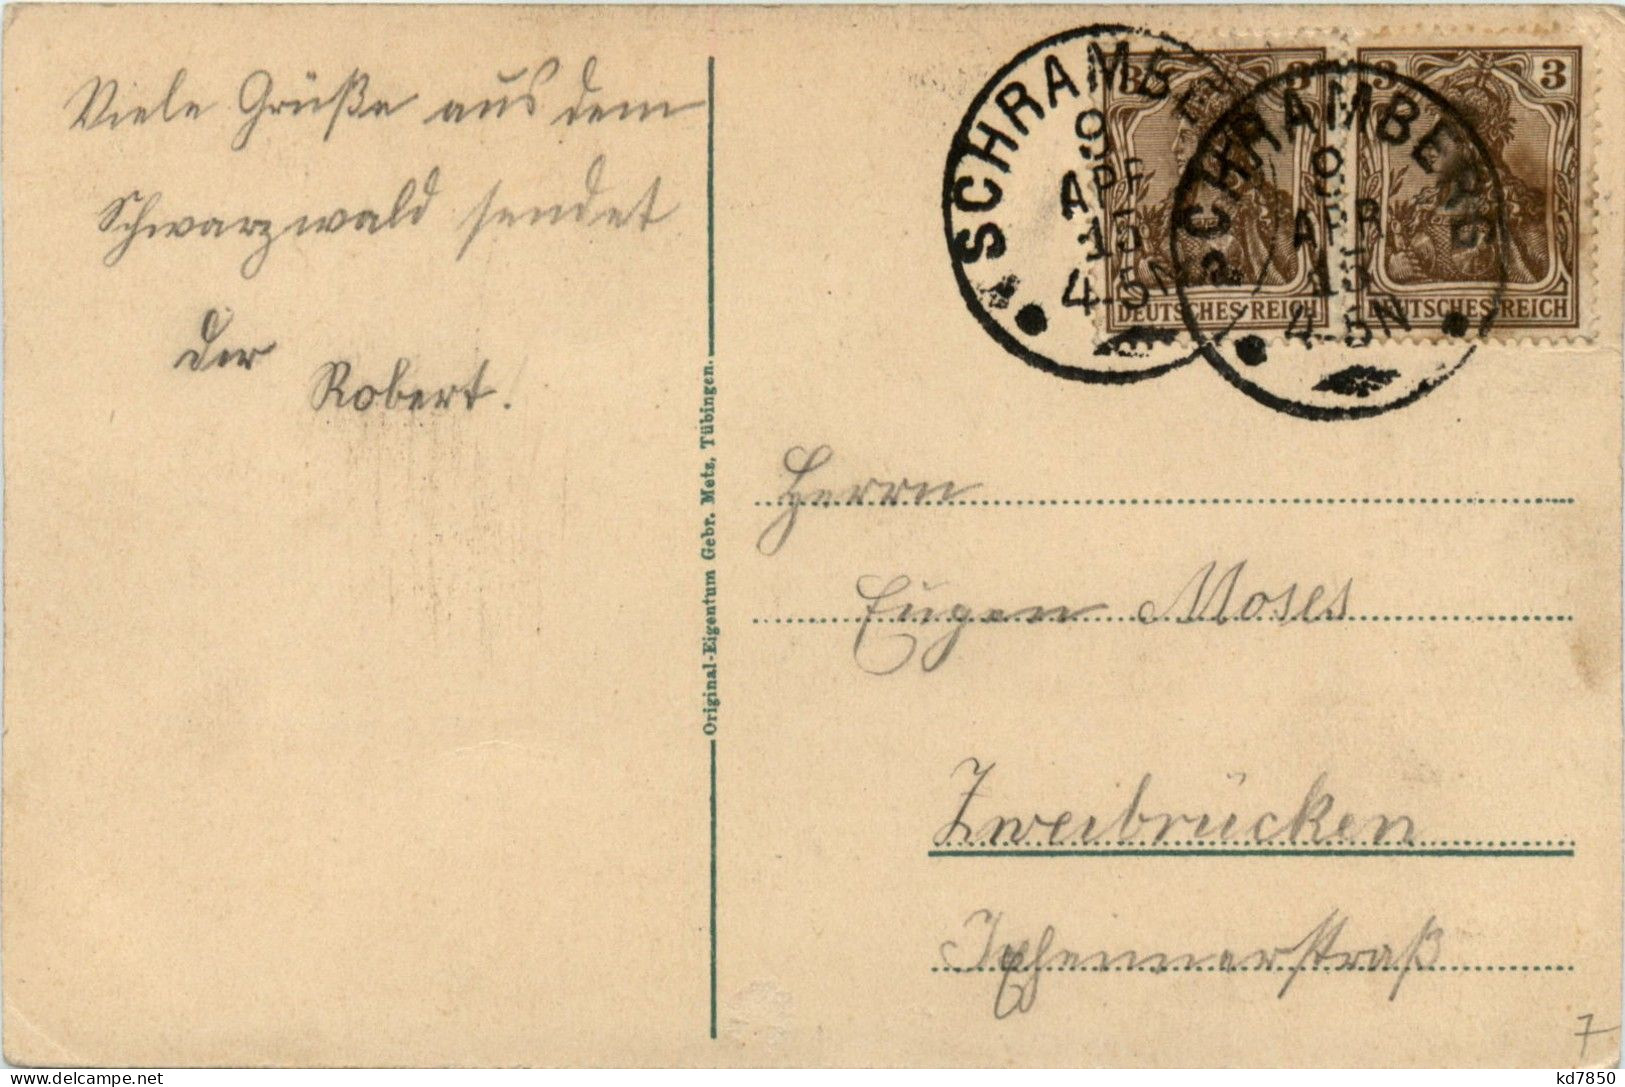 Viele Grüße aus dem
Schwarzwald sendet
der
Robert.
Original-Eigentum Gebr. Metz, Tübingen.
SCHRAMBERG
9
APR
15
4-5N
SCHRAMBERG
9
APR
15
4-5N
3 3
DEUTSCHES REICH
3 3
DEUTSCHES REICH
Herrn
Eugen Moses
Zweibrücken
7
delcampe.net
kd7850